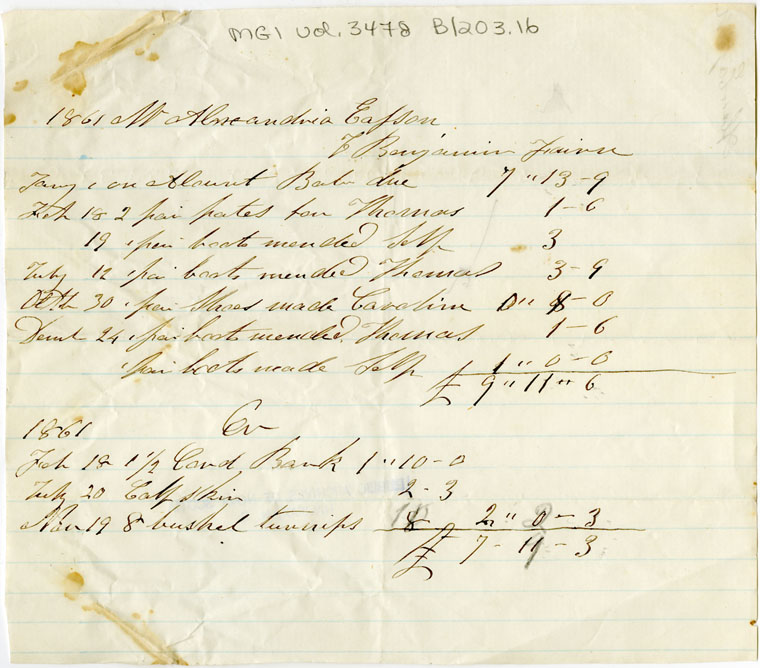 MG1 Vol. 3478 B/203.16
1861 Mr Alexandria Easson
To Benjamin
1 on Acount Bal due 7 " 13 - 9
Feb 18 2 pair pates for Thomas 1 - 6
19 1 pair boots mended Self 3
July 12 1 pair boots mended Thomas 3 - 9
Octh 30 1 pair Shoes made Caroline 0 " 8 - 0
Decmt 24 1 pair boots mended Thomas 1 - 6
1 pair boots made Self 1 " 0 - 0
£ 9 " 11 " 6
1861 Cr
Feb 18 1 1/2 Cord, Bark 1 " 10 - 0
July 20 Calf skin 2 - 3
Nov 19 8 bushel turnips 8 2 " 0 - 3
£ 7 - 11 - 3